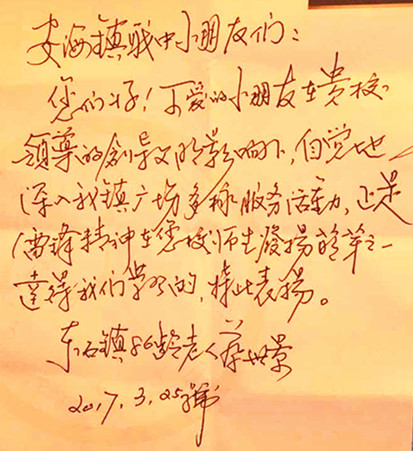 安海镇职中小朋友们:
您们好!可爱的小朋友在贵校
领导的创导及影响下,自觉地
深入我镇广场多样服务活动,这是
雷锋精神在您校师生发扬
值得我们学习的,特此表扬。
东石镇86龄老人蔡世景
2017.3.25號